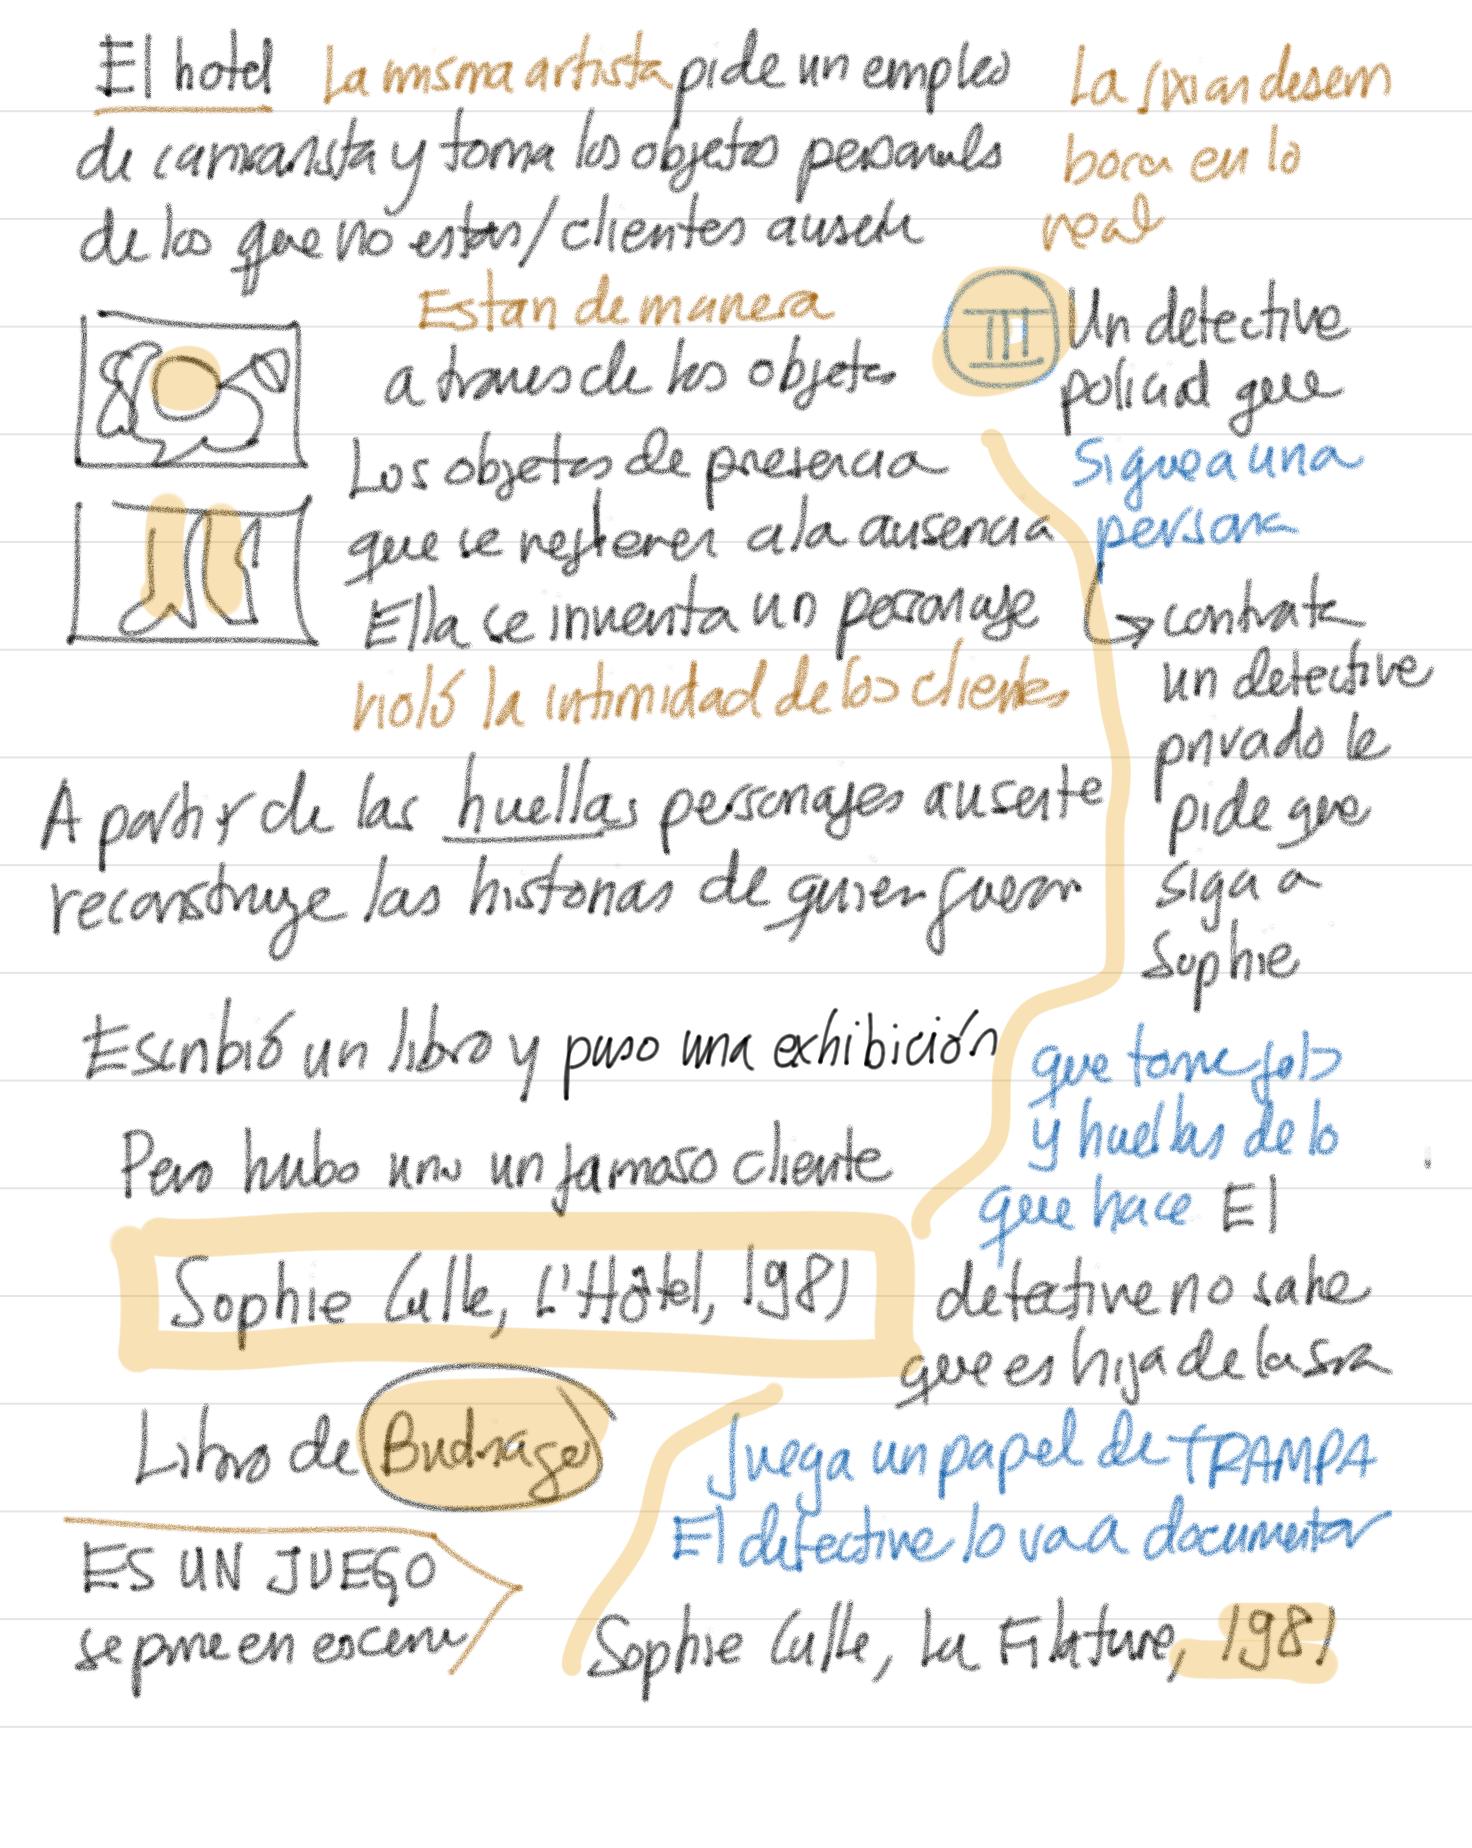 El hotel La misma artista pide un empleo
de camarista y toma los objetos personales
de los que no están/clientes ausen
Estan de manera
a traves de los objetos
Los objetos de presencia
que se refieren a la ausencia
Ella se inventa un personaje
violó la intimidad de los clientes
A partir de las huellas personajes ausente
reconstruye las historias de quien fueron
Escribió un libro y puso una exhibición
Pero hubo uno un famoso cliente
Sophie Calle, L'Hôtel, 1981
Libro de
ES UN JUEGO
se pone en escena
La desem
boca en lo
real
III Un detective
policial que
Sigue a una
persona
contrata
un detective
privado le
pide que
siga a
Sophie
que tome fotos
y huellas de lo
que hace El
detective no sabe
que es hija de la sra
Juega un papel de TRAMPA
El detective lo va a documentar
Sophie Calle, La Filature, 1981